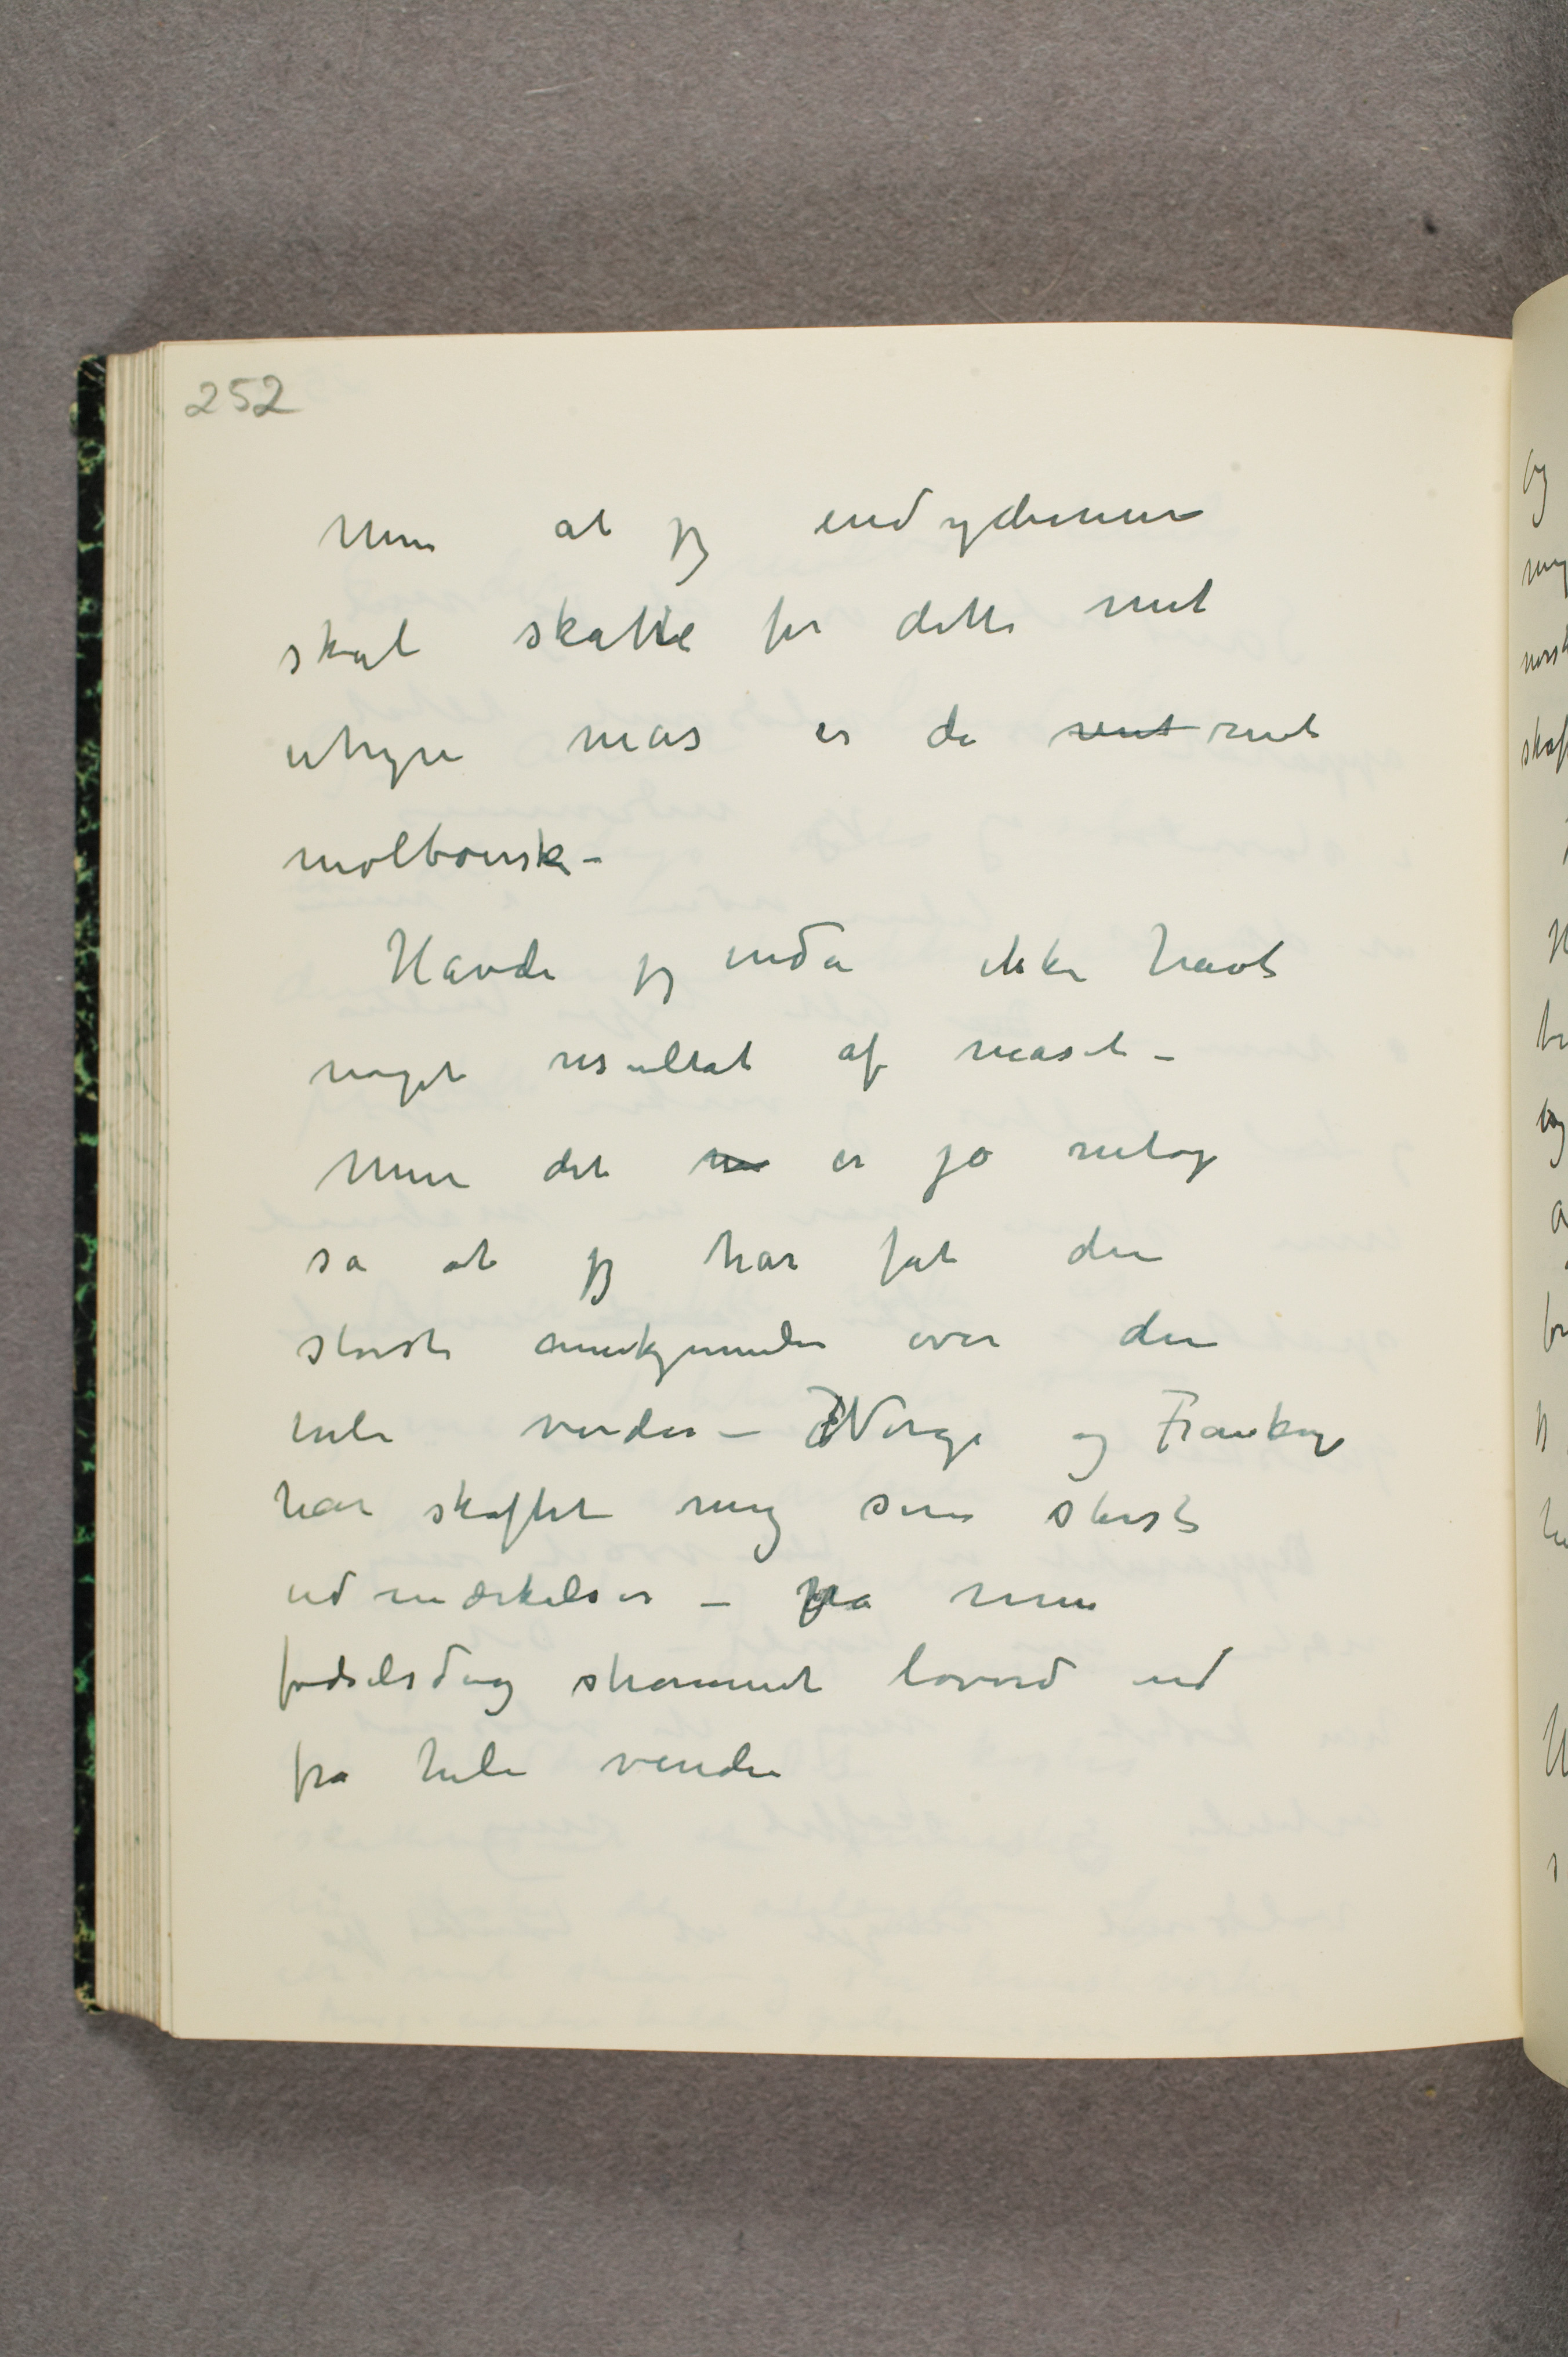 252
Men at jeg endydermere
skal skatte for dette mit
uhyre mas er da rent rent
molboersk –
Havde jeg enda ikke havt
noget resultat af maset –
Men det er jo netop
så at jeg har fåt den
störste anerkjennelse over den
hele verden – Norge og Frankrig
har skaffet mig sine störste
udmærkelser – på min
födselsdag strömmet lovord ind
fra hele verden